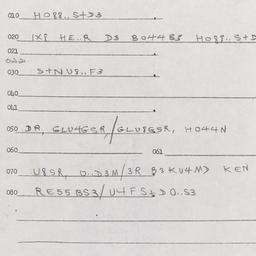 010 HO88..S+D3
020 1X8 HE..R D3 BO44BS HO88..S+D
021
030 S+NU8..F3
040
041
050 DR, GLU4GSR/GLU8GSR, HO44N
060 061
070 U8SR, O..D3M/3R B3KU4MD KEN
080 RE55BS3/U4FS+DO..S3